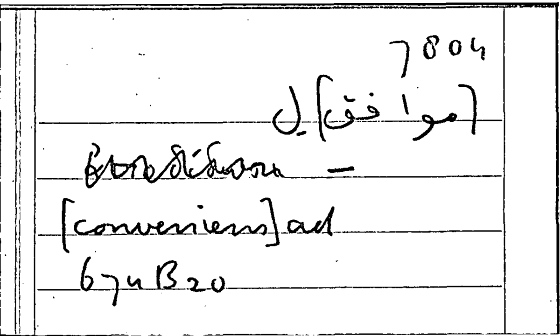 7804
[موافق] ل
–
[conveniens] ad
674B20